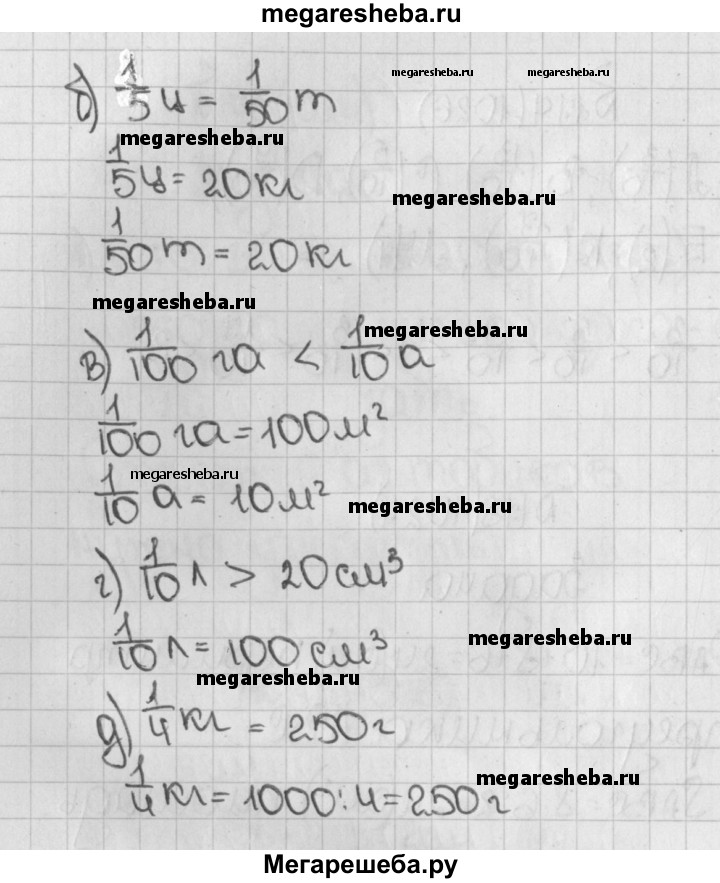 megaresheba.ru
б) 1/5 ц = 1/50 т
megaresheba.ru megaresheba.ru
megaresheba.ru
1/5 ц = 20 кг
megaresheba.ru
1/50 т = 20 кг
megaresheba.ru
в) 1/100 га < 1/10 а
megaresheba.ru
1/100 га = 100 м²
megaresheba.ru
1/10 а = 10 м²
megaresheba.ru
г) 1/10 л > 20 см³
1/10 л = 100 см³
megaresheba.ru
megaresheba.ru
д) 1/4 кг = 250 г
megaresheba.ru
1/4 кг = 1000 : 4 = 250 г
Мегарешеба.ру